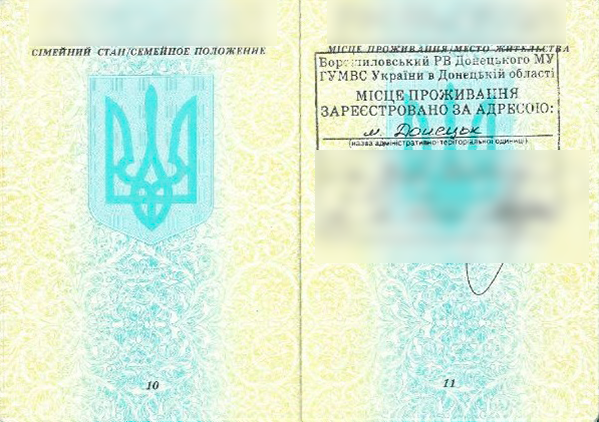 СІМЕЙНИЙ СТАН/СЕМЕЙНОЕ ПОЛОЖЕНИЕ
10
МІСЦЕ ПРОЖИВАННЯ/МЕСТО ЖИТЕЛЬСТВА
Ворошиловський РВ Донецького МУ
ГУМВС України в Донецькій області
МІСЦЕ ПРОЖИВАННЯ
ЗАРЕЄСТРОВАНО ЗА АДРЕСОЮ:
м. Донецьк
(назва адміністративно-територіальної одиниці)
11